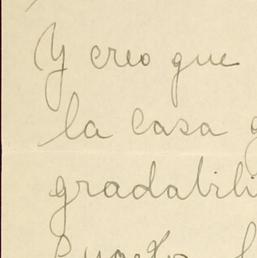 Y creo que
la casa
gradabili